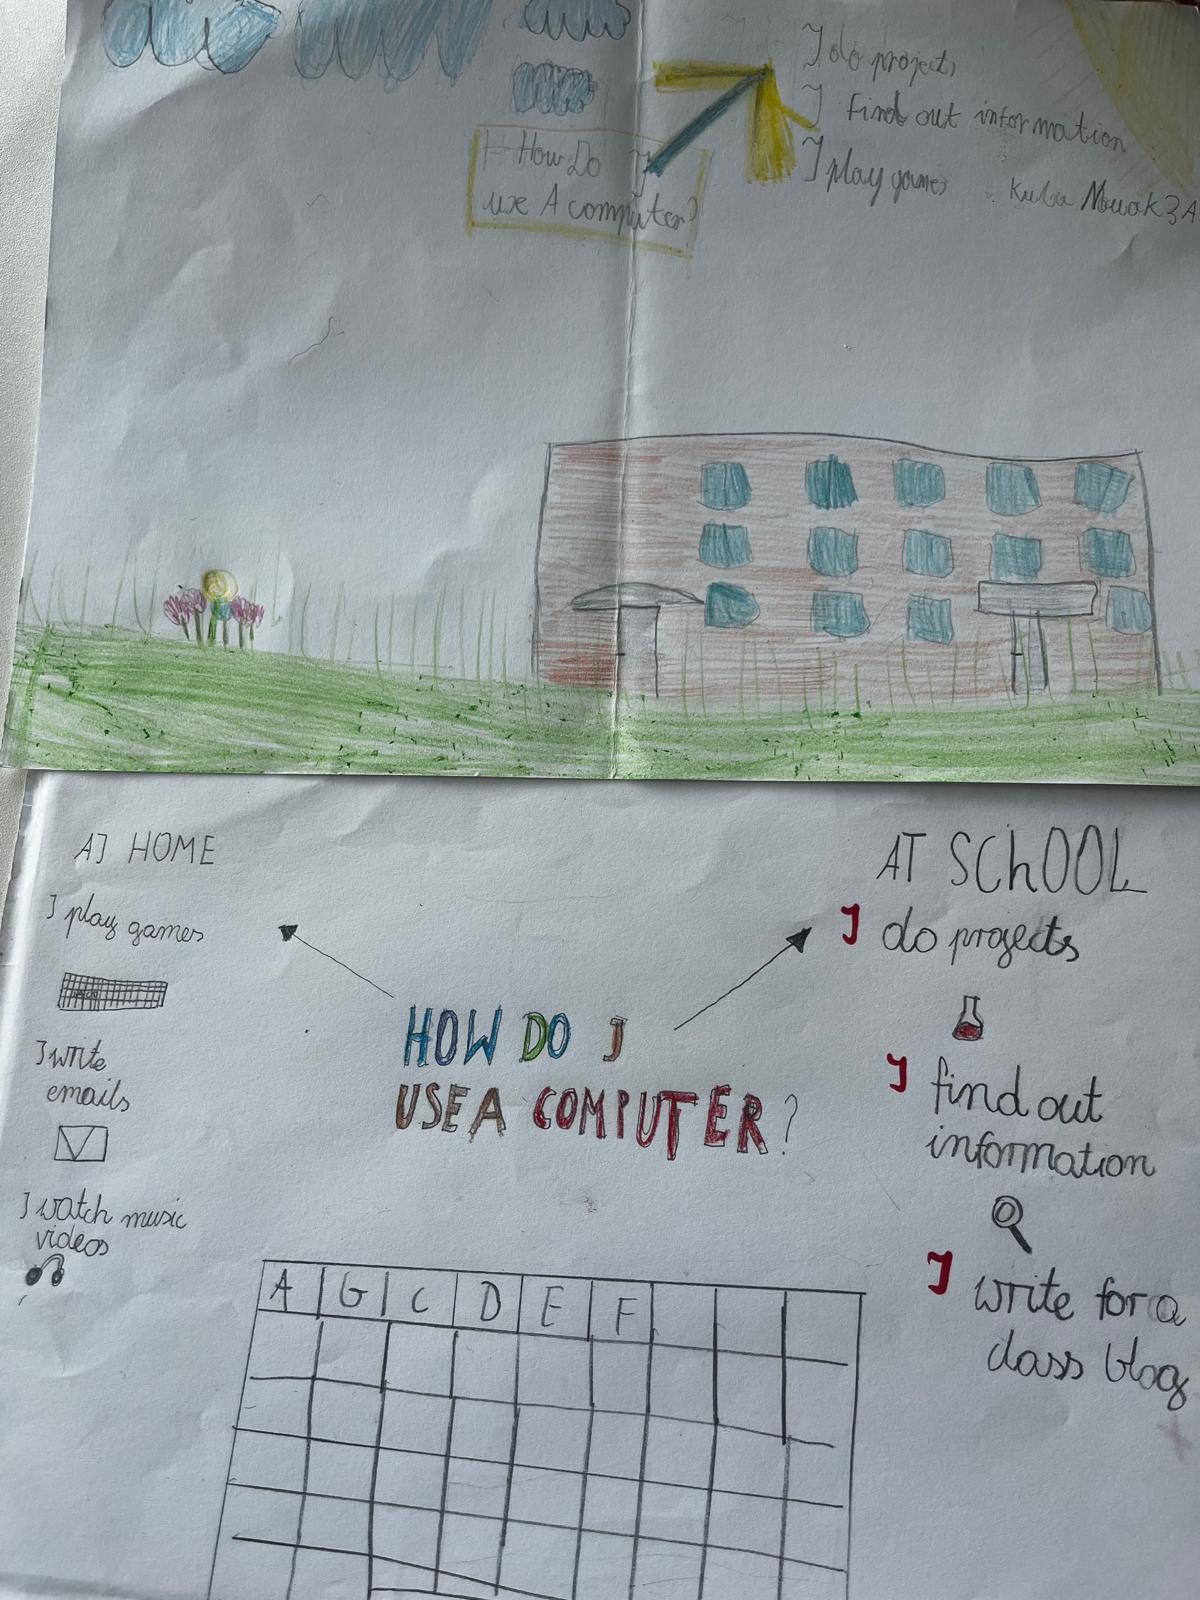 I do projects
I find out information
I play games
Kuba Nowak 3A
How Do I
use A computer?
AT HOME
I play games
I write
emails
I watch music
videos
HOW DO I
USE A COMPUTER?
AT SChOOL
I do projects
I find out
information
I write for a
class blog
A G C D E F